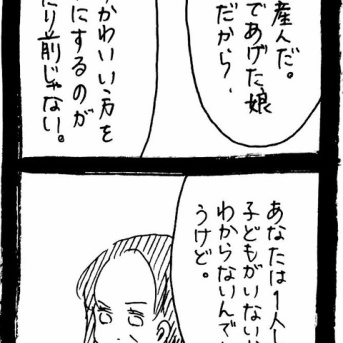 産んだ。
であげた娘
だから、
かわいい方を
にするのが
り前じゃない。
あなたは1人し
子どもがいないか
わからないんで
うけど。